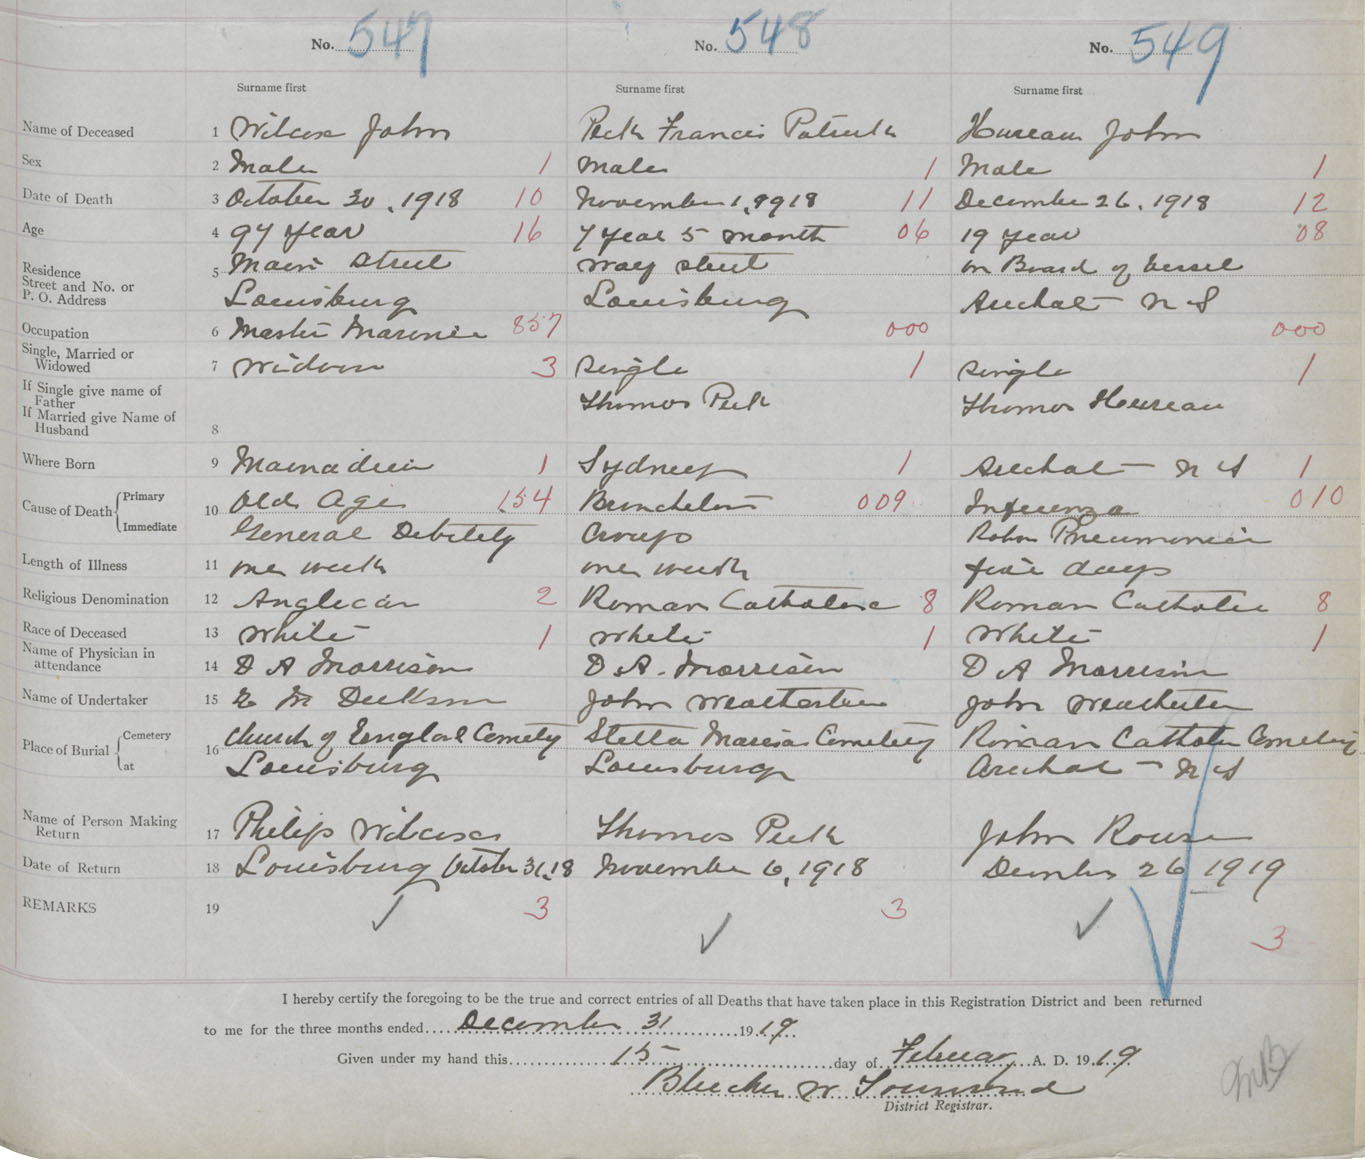 No. 547 No. 548 No. 549
Surname first Surname first Surname first
Name of Deceased 1 Wilcox John Peck Francis Patrick Hureau John
Sex 2 Male 1 Male 1 Male 1
Date of Death 3 October 30, 1918 10 November 1, 1918 11 December 26, 1918 12
Age 4 97 year 16 7 year 5 month 06 19 year 08
Residence Main Street Way street on Board of Vessel
Street and No. or 5
P. O. Address Louisburg Louisburg Arichat N S
Occupation 6 Master 857 000 000
Single, Married or
Widowed 7 Widow 3 Single 1 Single 1
If Single give name of
Father Thomas Peck Thomas Hureau
If Married give Name of
Husband 8
Where Born 9 Mainadieu 1 Sydney 1 Arichat N S 1
Cause of Death Primary 10 Old Age 154 009 Influenza 010
Immediate General Debility Croup Pneumonia
Length of Illness 11 one week one week five days
Religious Denomination 12 Anglican 2 Roman Catholic 8 Roman Catholic 8
Race of Deceased 13 White 1 White 1 White 1
Name of Physician in
attendance 14 D A Morrison D. A. Morrison D A Morrison
Name of Undertaker 15 Dickson John John
Place of Burial Cemetery 16 Church of England Cemety Stella Cemetery Roman Catholic Cemetery
at Louisburg Louisburg Arichat N S
Name of Person Making
Return 17 Philip Wilcox Thomas Peck John Rouse
Date of Return 18 Louisburg October 31, 18 November 6, 1918 26 1919
REMARKS 19 3 3 3
I hereby certify the foregoing to be the true and correct entries of all Deaths that have taken place in this Registration District and been returned
to me for the three months ended December 31 1919
Given under my hand this 15 day of A. D. 1919
Bleecker W Townsend
District Registrar.